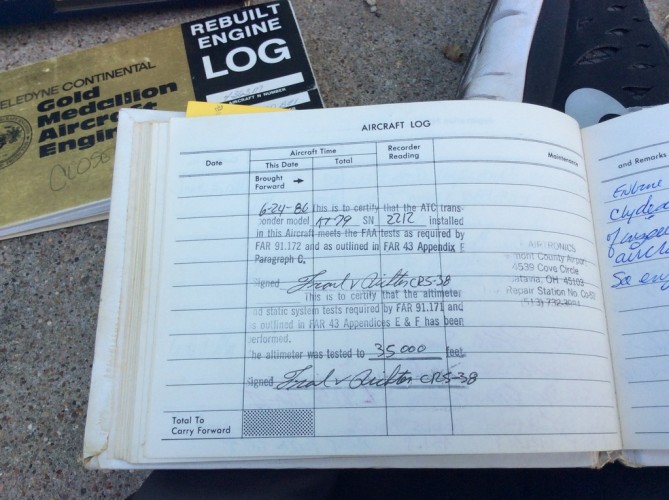 REBUILT
ENGINE
LOG
AIRCRAFT N NUMBER
TELEDYNE CONTINENTAL
Gold
Medallion
Aircraft
Engine
CLOSE
AIRCRAFT LOG
Date
Aircraft Time
This Date
Total
Recorder
Reading
Maintenance
Brought
Forward
6-24-86 This is to certify that the ATC trans-
ponder model KT-79 SN 2212 installed
in this Aircraft meets the FAA tests as required by
FAR 91.172 and as outlined in FAR 43 Appendix F
Paragraph C.
Signed CRS-38
This is to certify that the altimeter
and static system tests required by FAR 91.171 and
as outlined in FAR 43 Appendices E & F has been
performed.
The altimeter was tested to 35000 feet.
Signed CRS-38
AIRTRONICS
County Airport
4539 Cove Circle
OH 45103
Repair Station No.
(513)
Total To
Carry Forward
and Remarks
Engine
Clyde
of
aircra
See eng